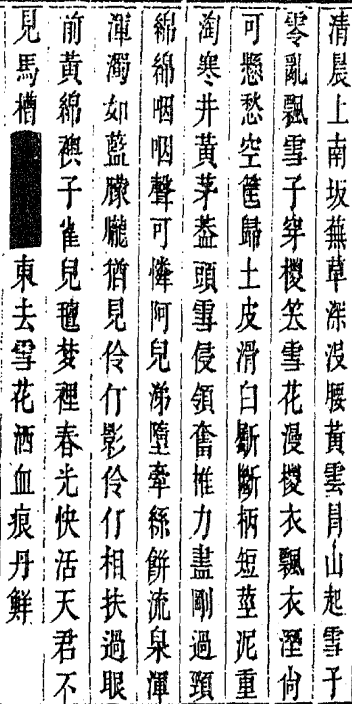 清晨上南坂蕪草深沒腰黃雲冐山起雪子
零亂飄雪子穿椶笠雪花漫椶衣飄衣溼尙
可懸愁空筐歸土皮滑白斸斷柄短莖泥重
淘寒井黃茅葢頭雪侵領奮椎力盡剛過頸
綿綿咽咽聲可憐阿兒涕墮牽絲餅流泉渾
渾濁如藍朦朧猶見伶仃影伶仃相扶過眼
前黃綿襖子雀兒氊夢裡春光快活天君不
見馬槽東去雪花洒血痕丹鮮